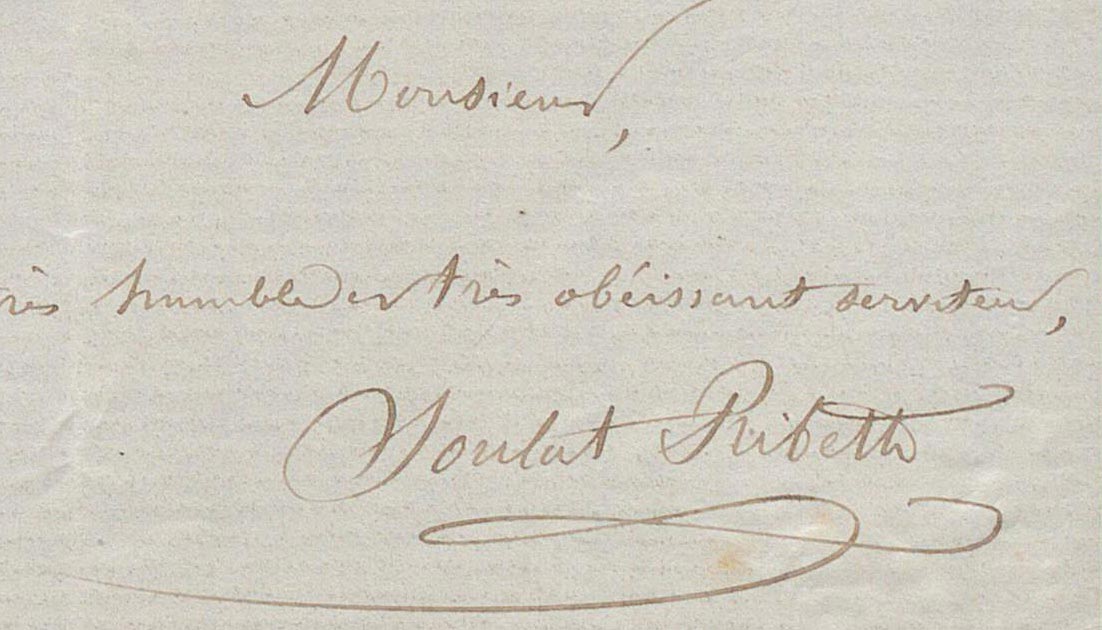 Monsieur,
très humble et très obéissant serviteur,
Soulat Ribette